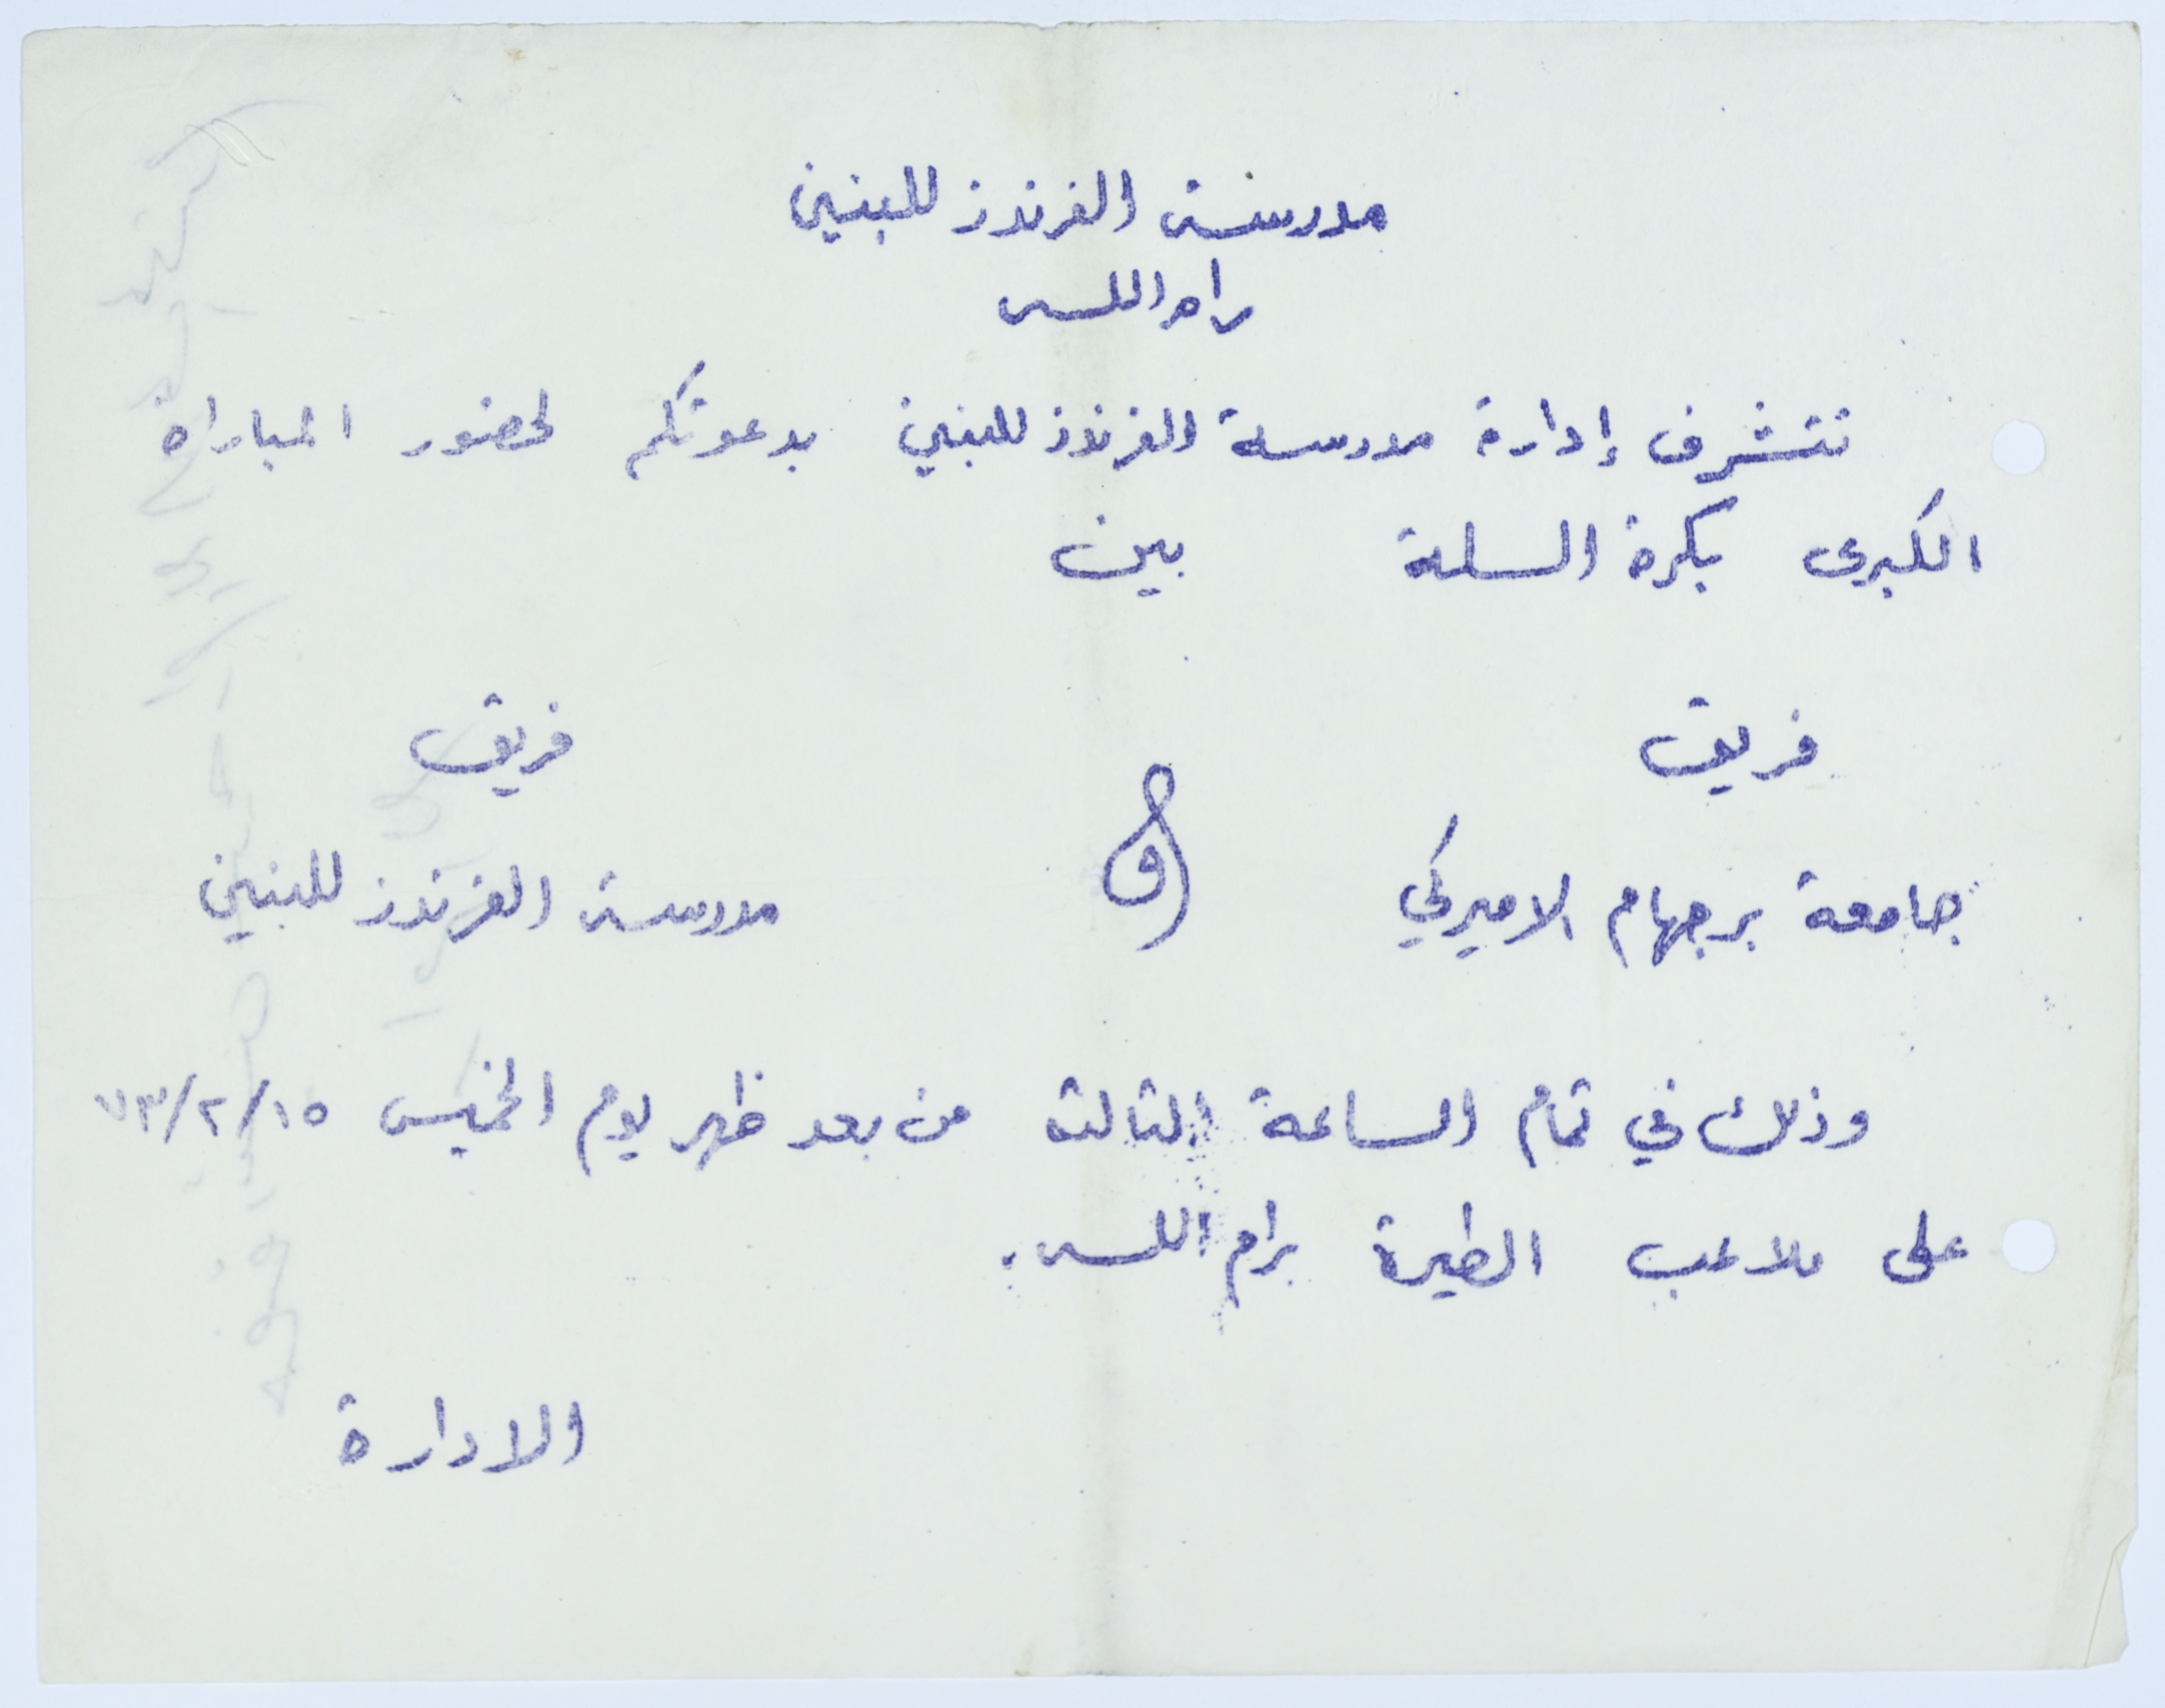 مدرسة الفرندز للبنين
رام الله
تتشرف إدارة مدرسة الفرندز للبنين بدعوتكم لحضور المباراة
الكبرى بكرة السلة بين
فريق فريق
جامعة برجهام الاميركي و مدرسة الفرندز للبنين
وذلك في تمام الساعة الثالثة من بعد ظهر يوم الخميس ٧٣/٢/١٥
على ملاعب الطيرة برام الله.
الادارة